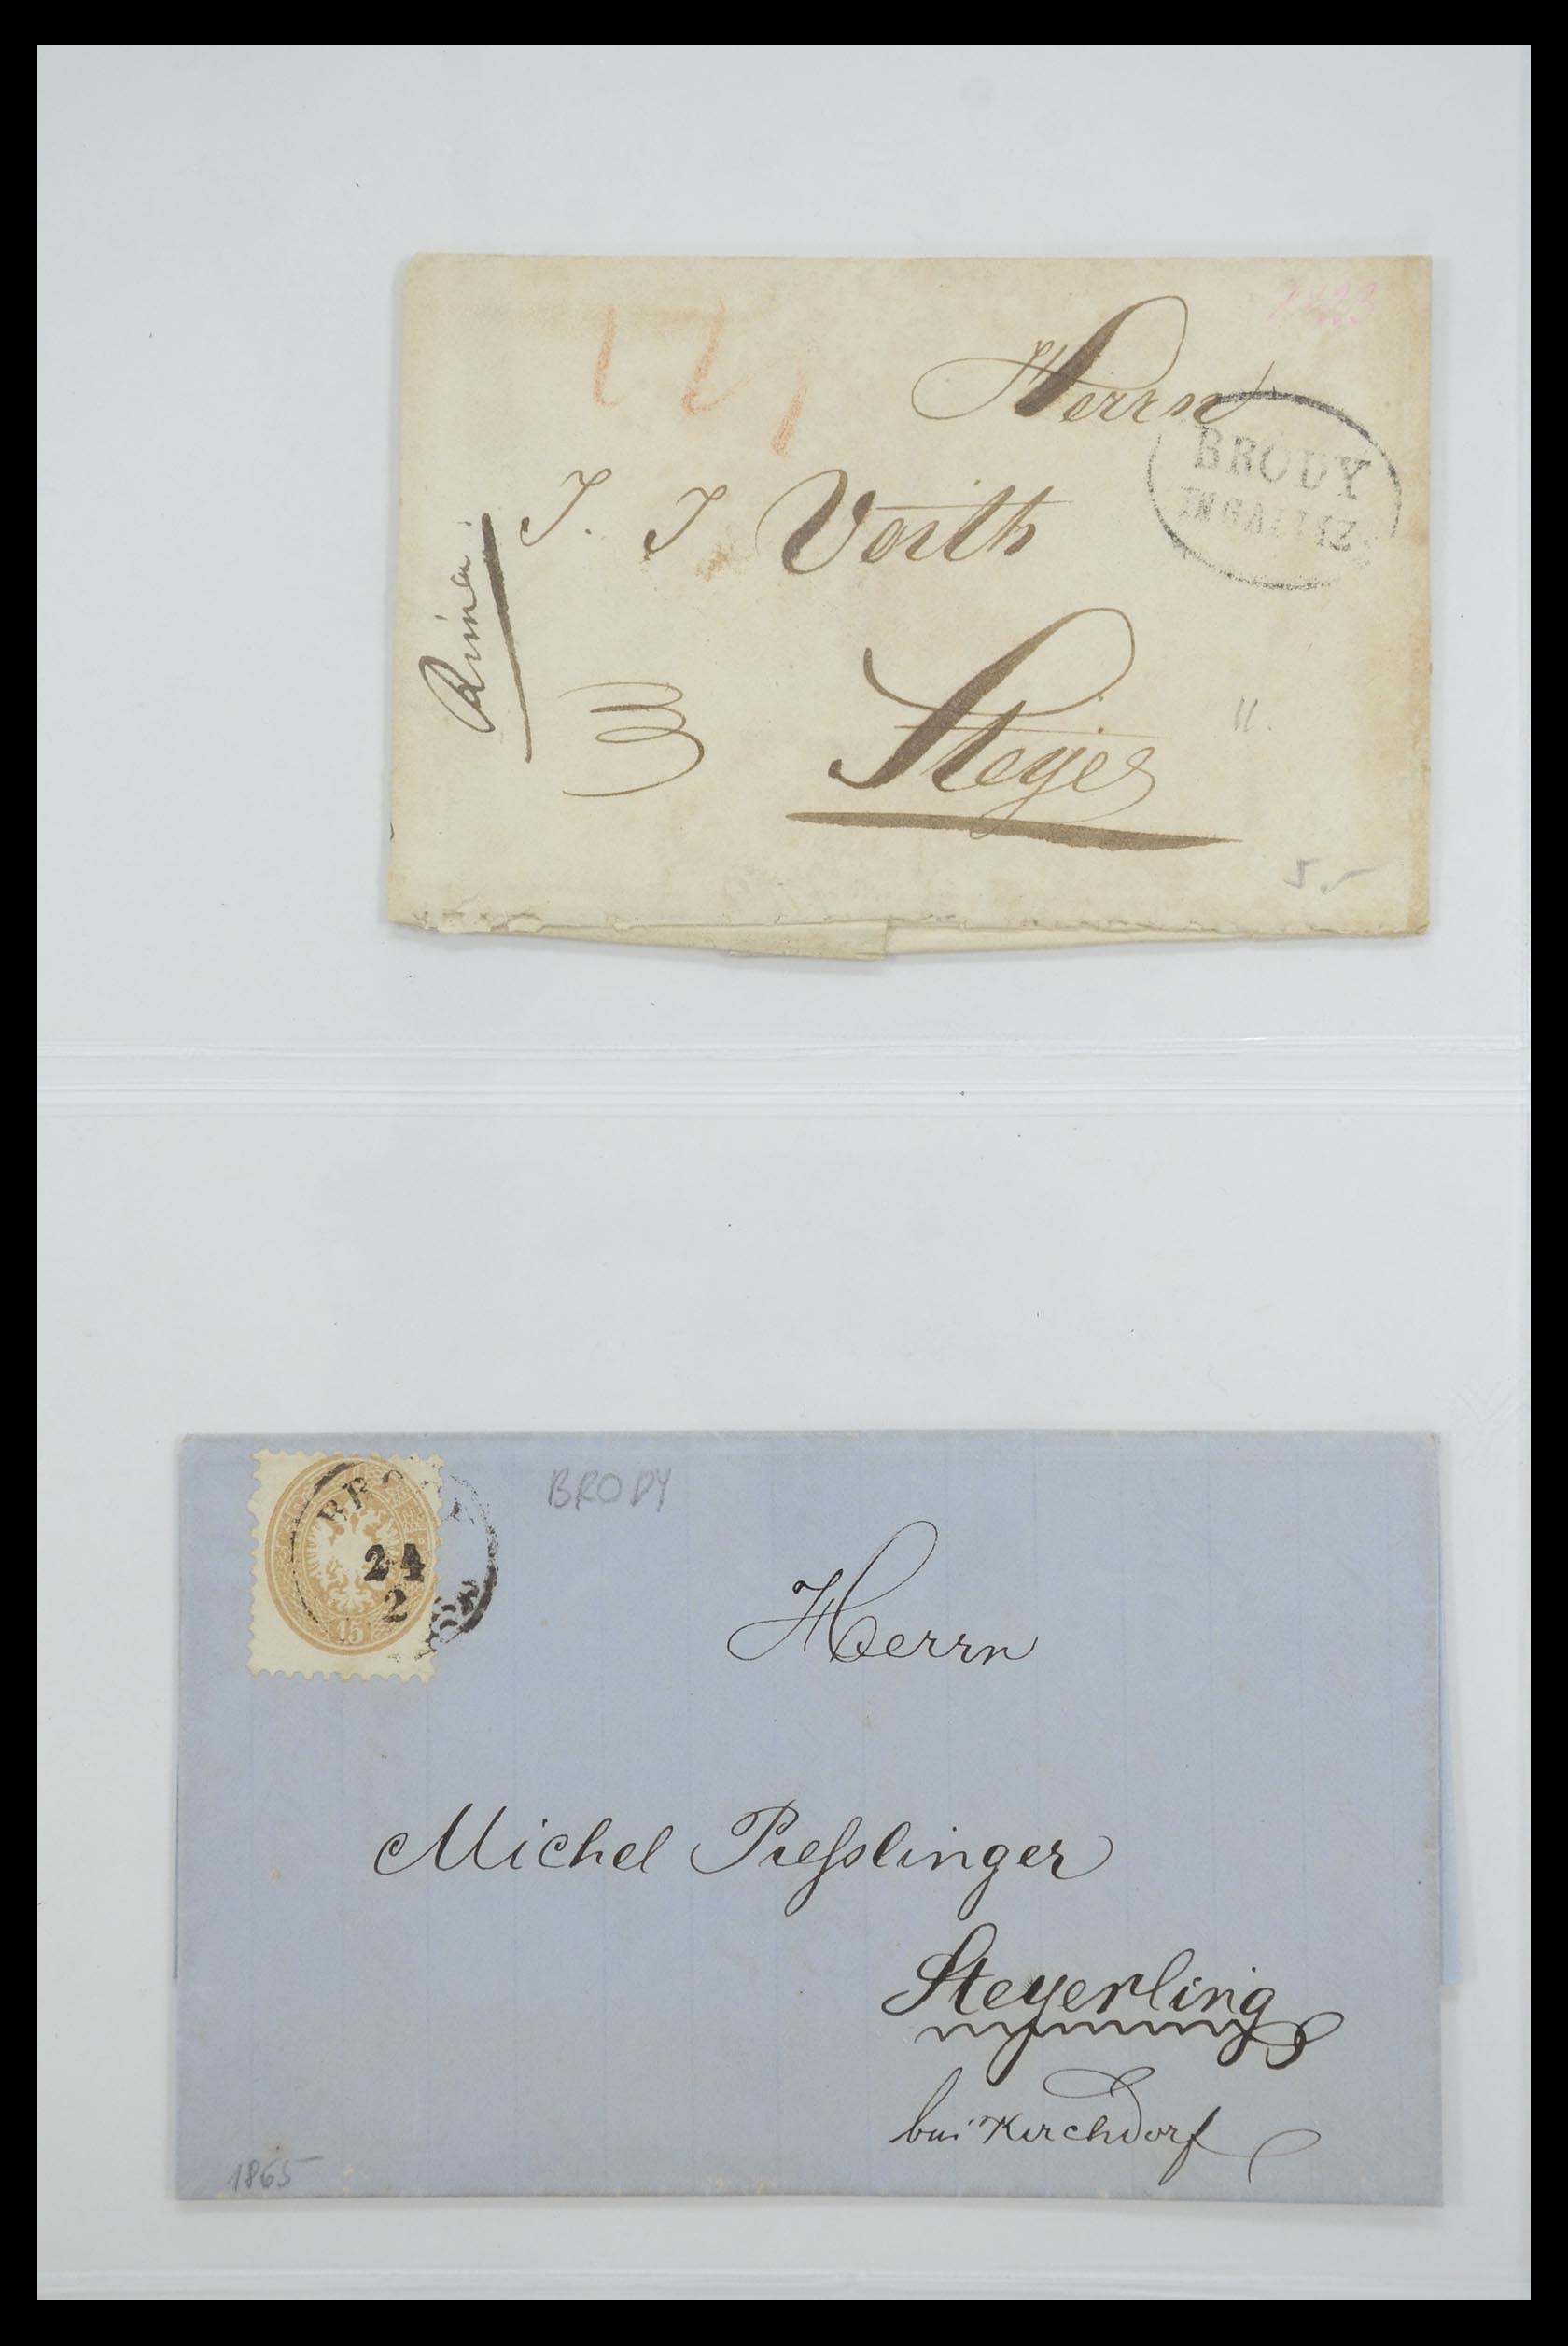 Herrn
BRODY
IN GALLIZ
J. J Voith
Steyer
11.
BRODY
BRODY
24
2
15
Herrn
Michel Preßlinger
Steyerling
bei Kirchdorf
1865